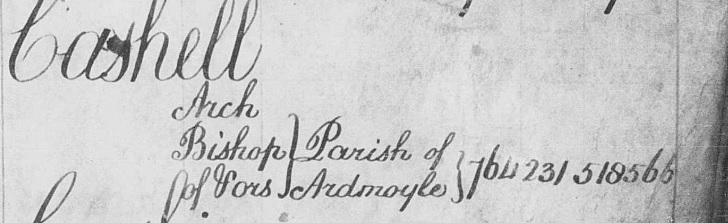 Cashell
Arch
Bishop } Parish of
of &ors } Ardmoyle } 764 231 518566